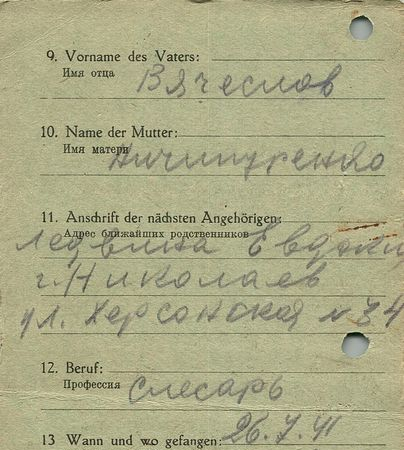 9. Vorname des Vaters:
Имя отца Вячеслав
10. Name der Mutter:
Имя матери Ничипуренко
11. Anschrift der nächsten Angehörigen:
Адрес ближайших родственников
Ледвина Евдоки
г. Николаев
ул. Херсонская № 34
12. Beruf:
Профессия Слесарь
13 Wann und wo gefangen: 26.7.41